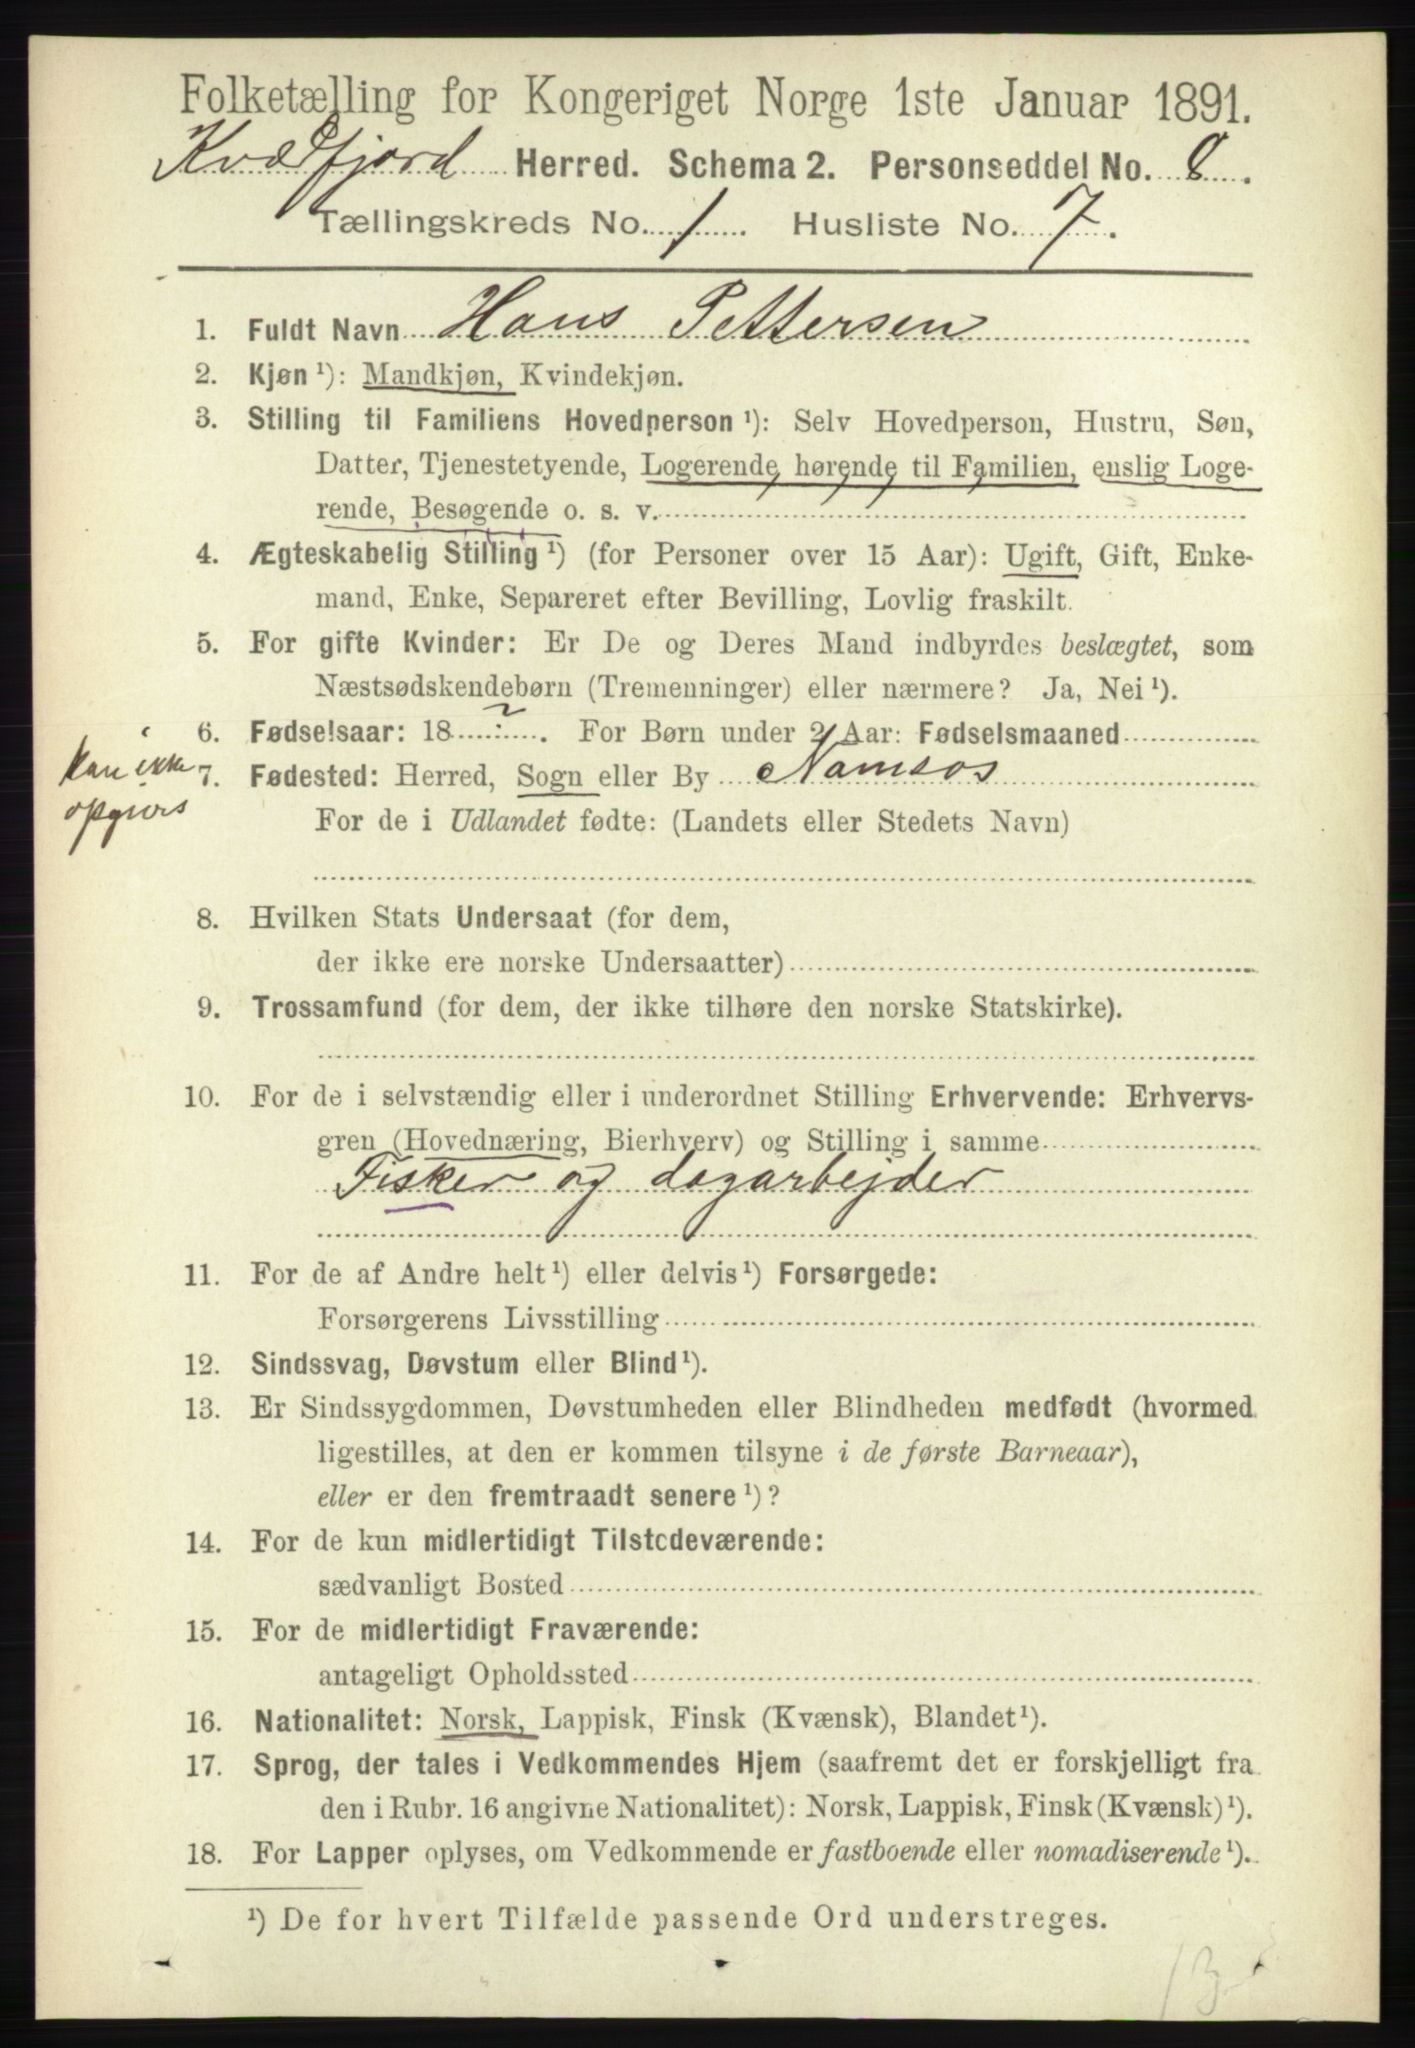 Folketælling for Kongeriget Norge 1ste Januar 1891.
Kvædfjord Herred. Schema 2. Personseddel No. 8.
Tællingskreds No. 1. Husliste No. 7.
1. Fuldt Navn Hans Pettersen
2. Kjøn ¹): Mandkjøn, Kvindekjøn.
3. Stilling til Familiens Hovedperson ¹): Selv Hovedperson, Hustru, Søn,
Datter, Tjenestetyende, Logerende hørende til Familien, enslig Loge-
rende, Besøgende o. s. v.
4. Ægteskabelig Stilling ¹) (for Personer over 15 Aar): Ugift, Gift, Enke-
mand, Enke, Separeret efter Bevilling, Lovlig fraskilt.
5. For gifte Kvinder: Er De og Deres Mand indbyrdes beslægtet, som
Næstsødskendebørn (Tremenninger) eller nærmere? Ja, Nei ¹).
6. Fødselsaar: 18 ?. For Børn under 2 Aar: Fødselsmaaned
kan ikke
opgives
7. Fødested: Herred, Sogn eller By Namsos
For de i Udlandet fødte: (Landets eller Stedets Navn)
8. Hvilken Stats Undersaat (for dem,
der ikke ere norske Undersaatter)
9. Trossamfund (for dem, der ikke tilhøre den norske Statskirke).
10. For de i selvstændig eller i underordnet Stilling Erhvervende: Erhvervs-
gren (Hovednæring, Bierhverv) og Stilling i samme
Fisker og dagarbejder
11. For de af Andre helt ¹) eller delvis ¹) Forsørgede:
Forsørgerens Livsstilling
12. Sindssvag, Døvstum eller Blind ¹).
13. Er Sindssygdommen, Døvstumheden eller Blindheden medfødt (hvormed
ligestilles, at den er kommen tilsyne i de første Barneaar),
eller er den fremtraadt senere ¹)?
14. For de kun midlertidigt Tilstedeværende:
sædvanligt Bosted
15. For de midlertidigt Fraværende:
antageligt Opholdssted
16. Nationalitet: Norsk, Lappisk, Finsk (Kvænsk), Blandet ¹).
17. Sprog, der tales i Vedkommendes Hjem (saafremt det er forskjelligt fra
den i Rubr. 16 angivne Nationalitet): Norsk, Lappisk, Finsk (Kvænsk) ¹).
18. For Lapper oplyses, om Vedkommende er fastboende eller nomadiserende ¹).
¹) De for hvert Tilfælde passende Ord understreges.